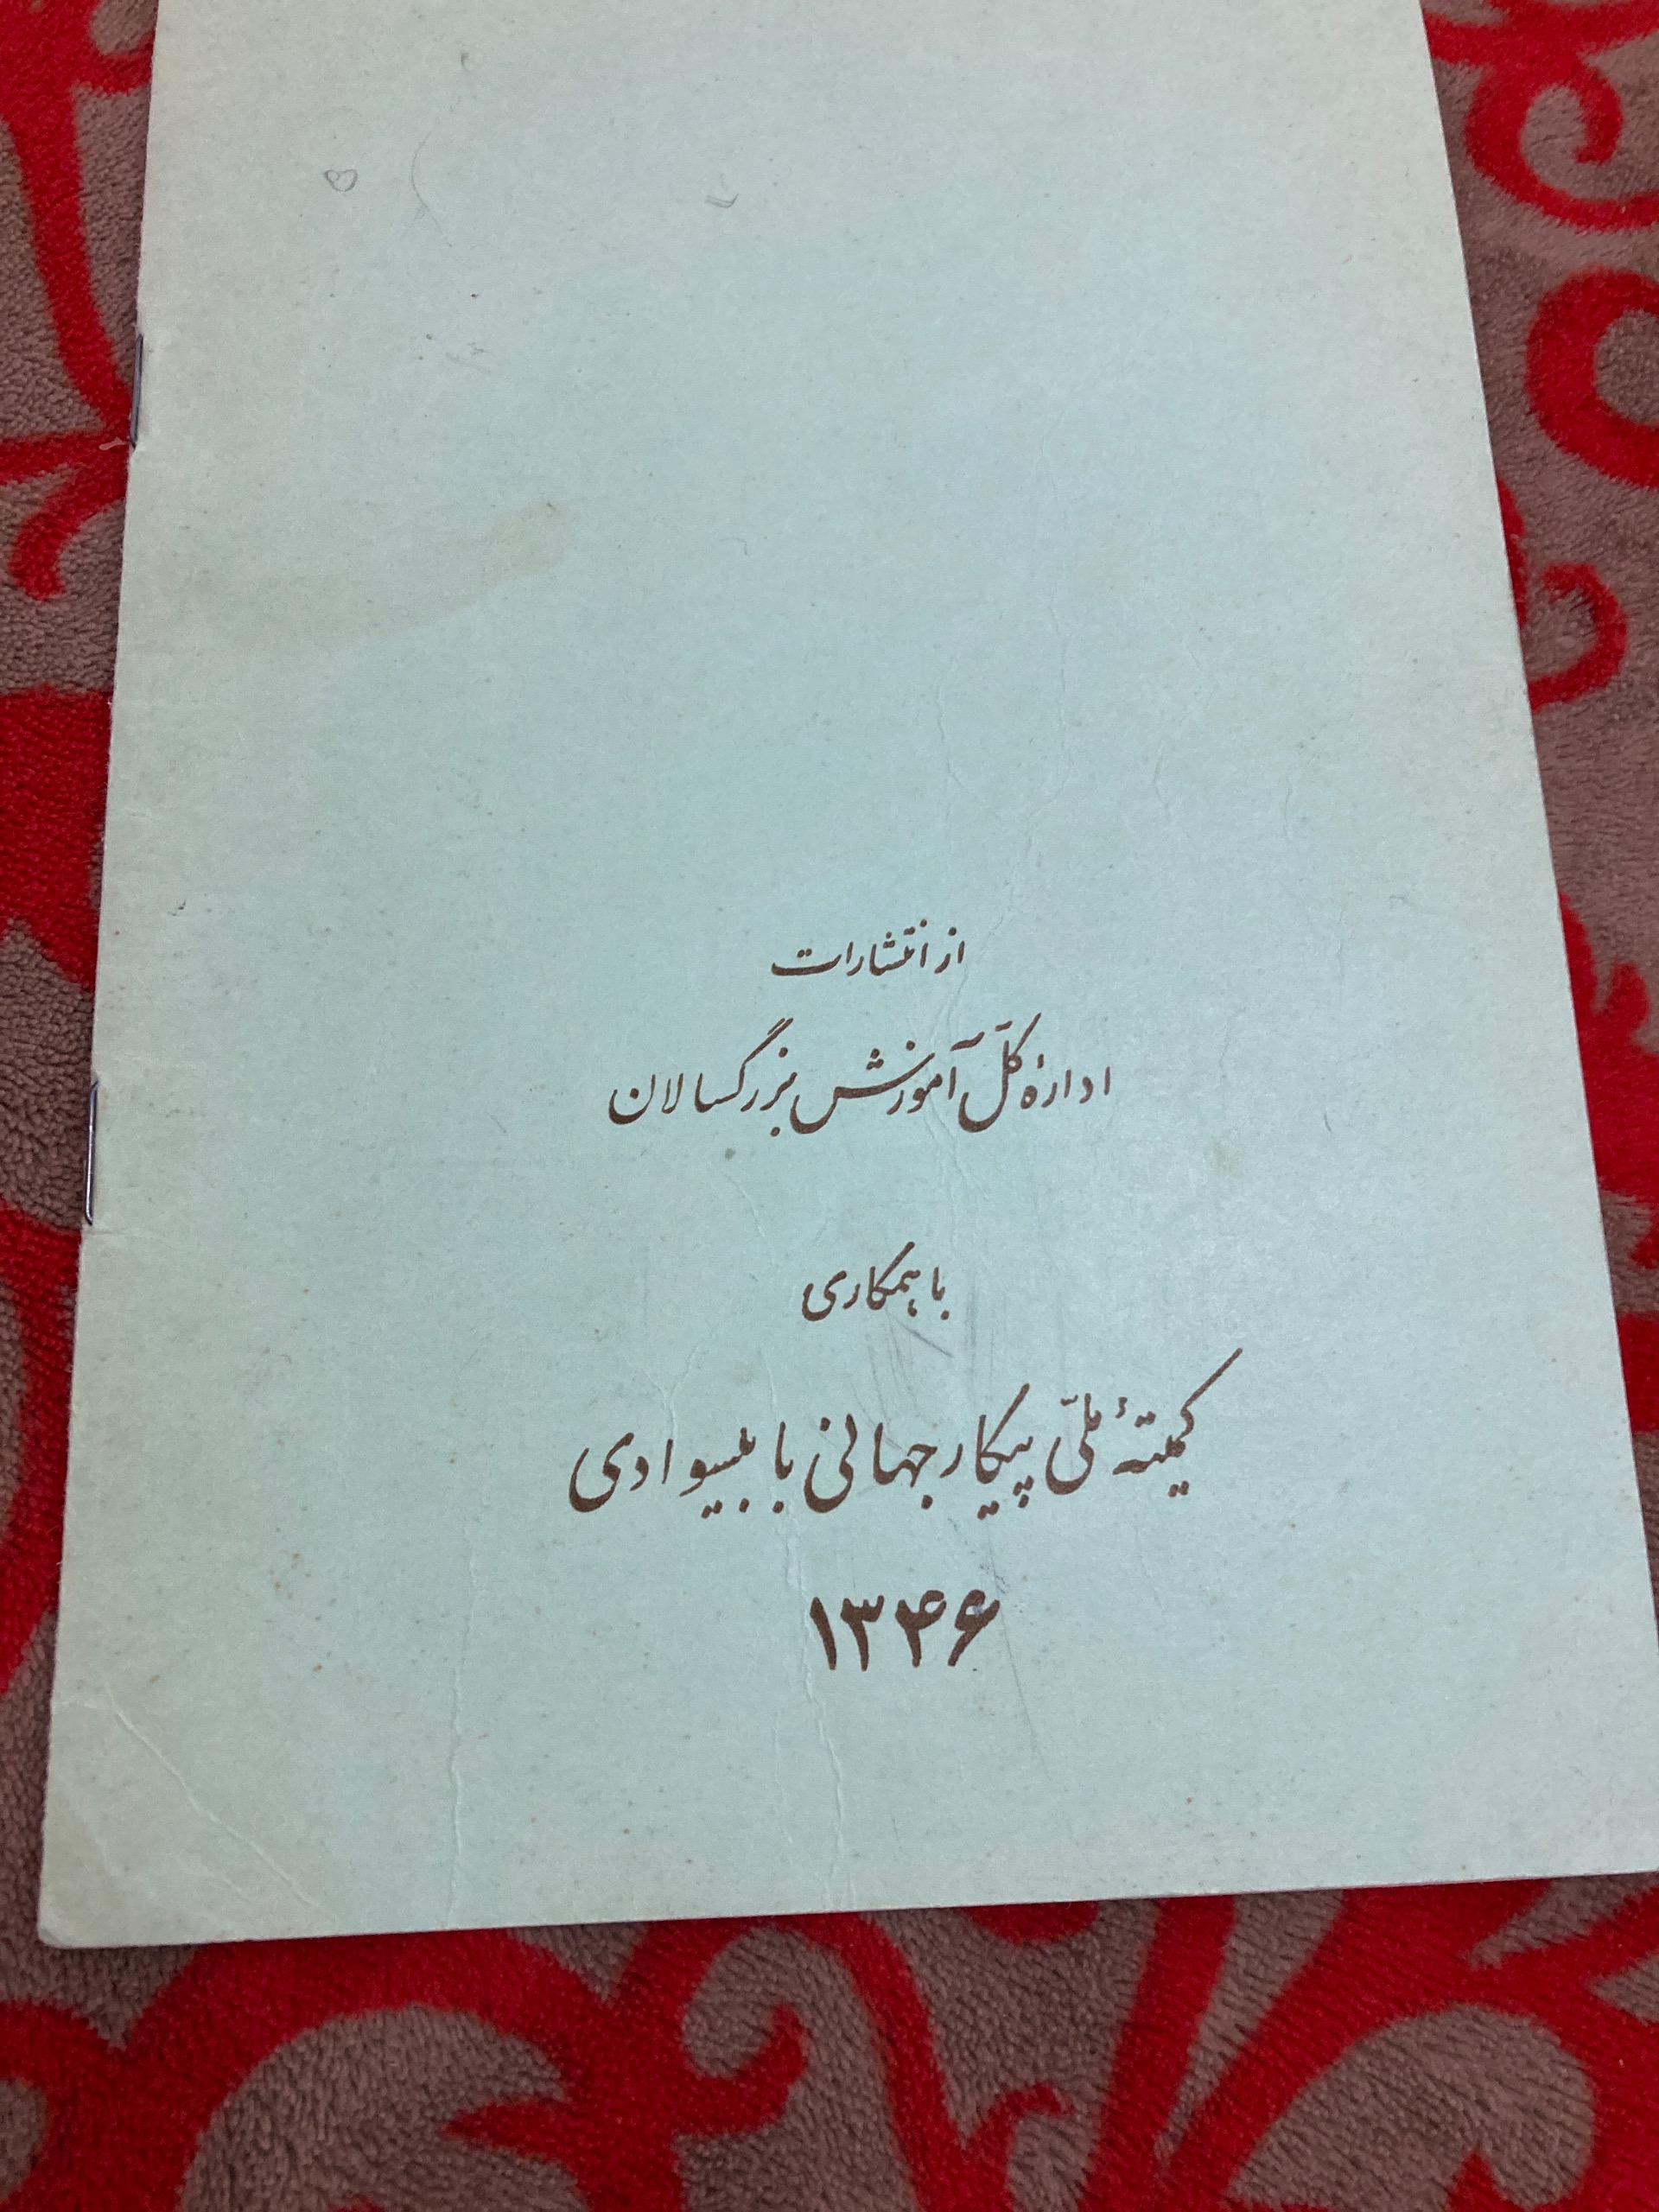 از انتشارات
ادارهٔ کلّ آموزش بزرگسالان
با همکاری
کمیتهٔ ملّی پیکار جهانی با بیسوادی
۱۳۴۶